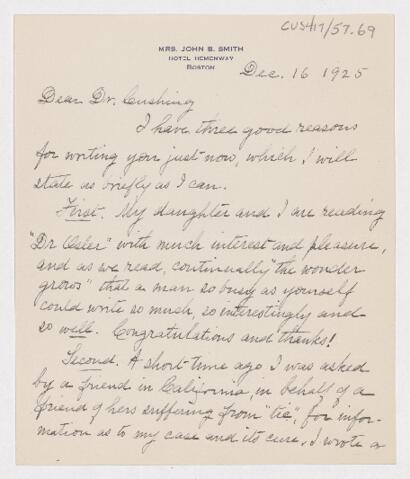 CUS417/57.69
MRS. JOHN B. SMITH
HOTEL HEMENWAY
BOSTON
Dec. 16 1925
Dear Dr. Cushing
I have three good reasons
for writing you just now, which I will
state as briefly as I can.
First. My daughter and I are reading
"Dr Osler" with much interest and pleasure,
and as we read, continually "the wonder
grows" that a man so busy as yourself
could write so much, so interestingly, and
so well. Congratulations and thanks!
Second. A short time ago I was asked
by a friend in California, in behalf of a
friend of hers suffering from "tic", for infor-
mation as to my case and its cure. I wrote a